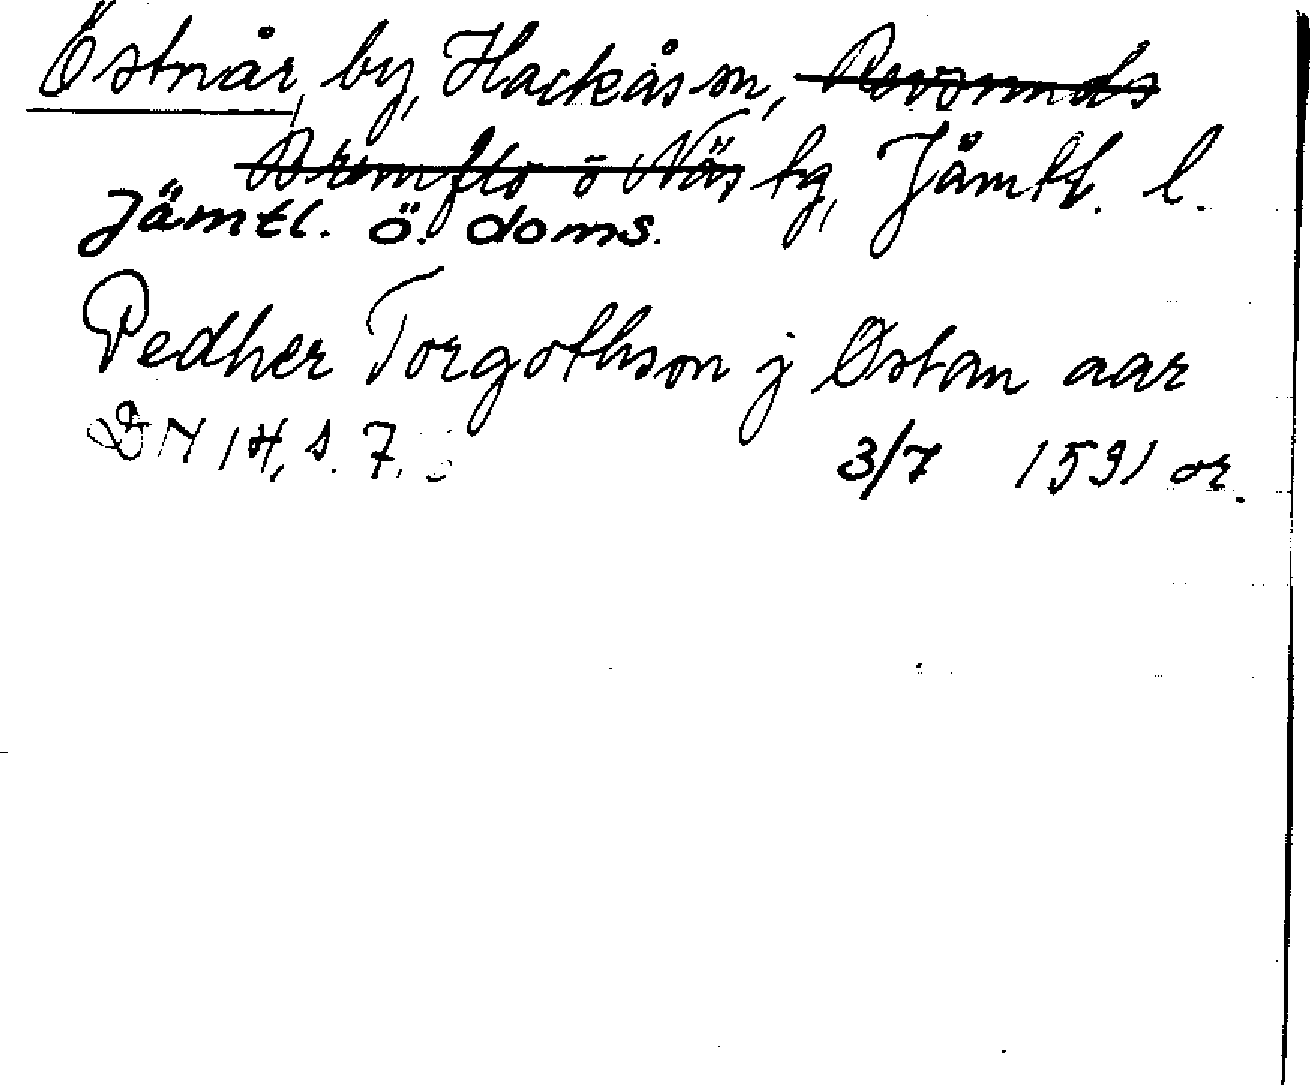 Östnår, by, Hackås sn, Revsunds
Brunflo ö Näs tg, Jämtl. l.
Jämtl. ö. doms.
Pedher Torgothson j Østan aar
DN 14, s. 7. 3/7 1531 or.